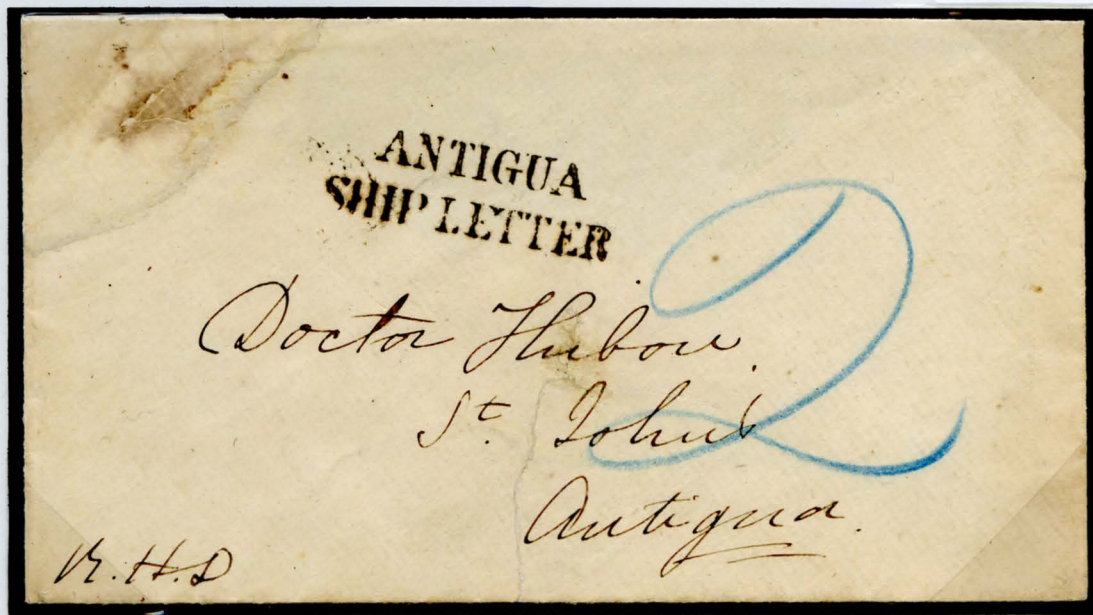 ANTIGUA
SHIP LETTER
2
Doctor
St. John's
Antigua.
H.D